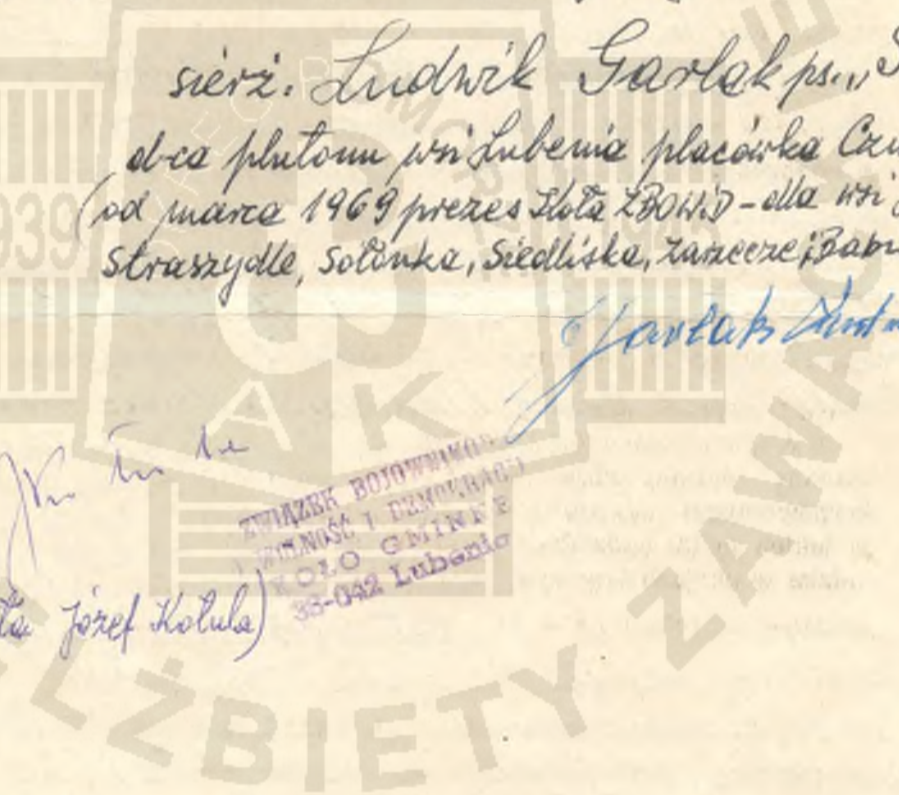 sierż. Ludwik Garlak ps. „S
d-ca plutonu wsi Lubenia placówka Czu
(od marca 1969 prezes Koła ZBOWiD - dla wsi
Straszydle, Sołonka, Siedliska, Zarzecze i Babi
Garlak
ZWIĄZEK BOJOWNIKÓW
O WOLNOŚĆ I DEMOKRACJĘ
KOŁO GMINNE
35-042 Lubenia
Józef Kotula)
1939
AK
ELŻBIETY ZAWAC